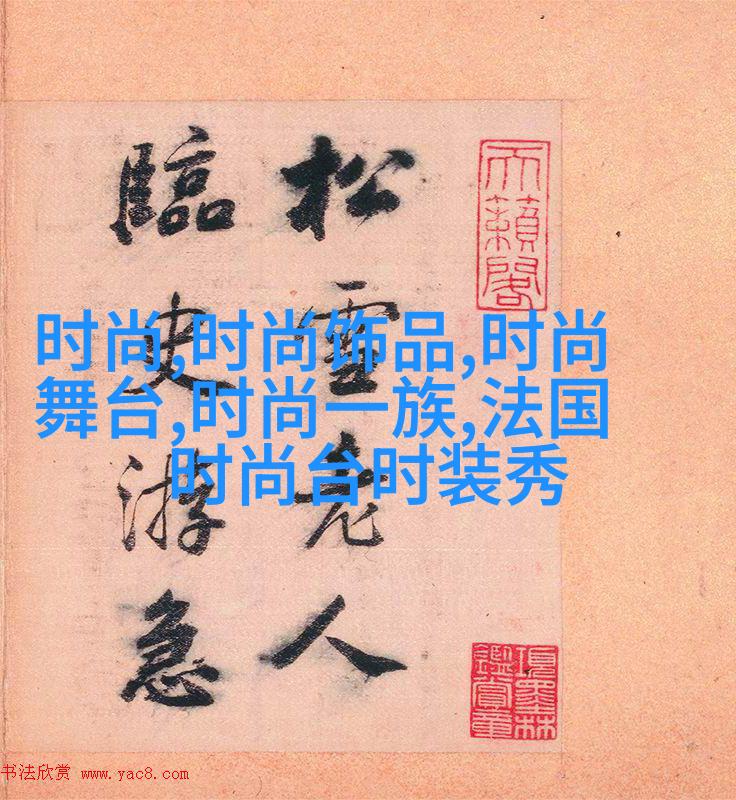 松雪老人
臨史游急
天籟閣
項墨林
鑑賞章
时尚,时尚饰品,时尚
舞台,时尚一族,法国
时尚台时装秀
书法欣赏 www.yac8.com